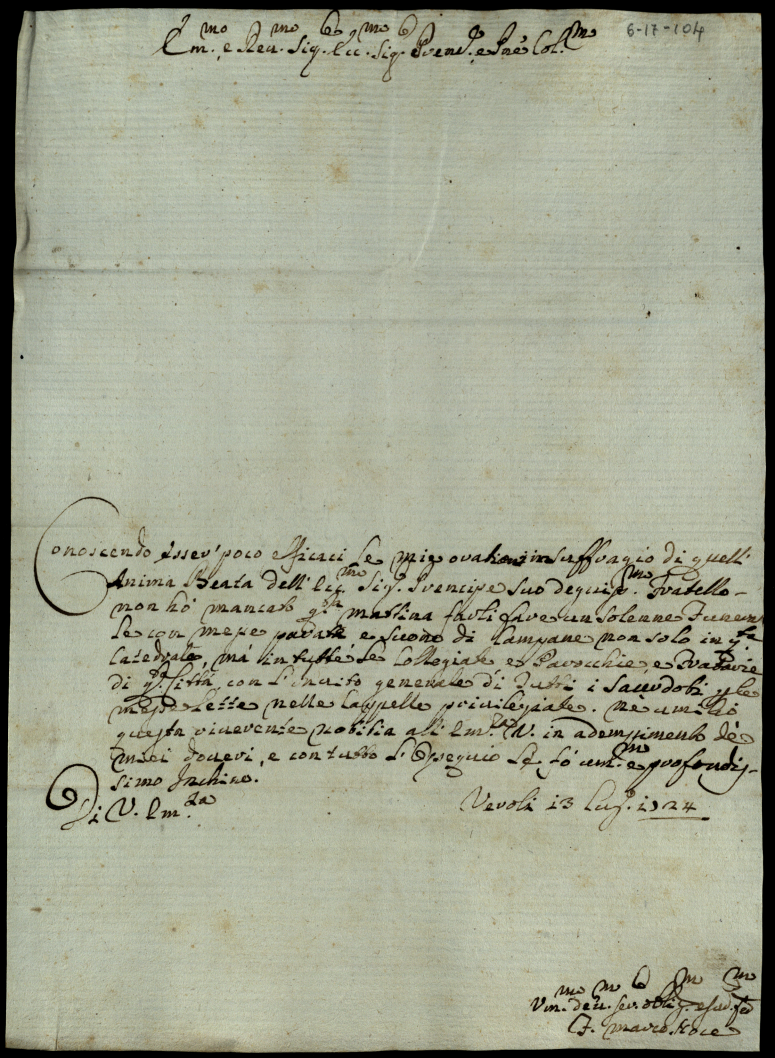 Em.mo e Rev.mo Sig.re Ecc.mo Sig.re Prend.e e Pne Col.mo
6-17-104
Conoscendo esser' poco efficaci le mie orationi in suffragio di quell'
Anima Beata dell'Ecc.mo Sig.r Prencipe suo degnis.mo Fratello
non hò mancato q.sta mattina farli fare un solenne Funera
le con messe parate e suono di Campane non solo in q.sta
Catedrale, mà in tutte le Collegiate e Parocchie e Fratarie
di q.sta Città con l'invito generale di tutti i Sacerdoti p le
messe lette nelle Cappelle privilegiate. Ne umilio
questa riverente notitia all'Em.za V. in adempimento dè
miei doveri, e con tutto l'Ossequio le fò um.mo e profondis-
simo Inchino.
Di V. Em.za
Veroli 13 Lug.o 1724
Um. dev. ser. obblig.mo
F. Marco